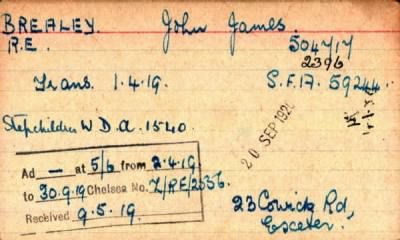 BREALEY. John James.
R.E. 504717
2396
Trans. 1.4.19. S.F.A. 59244.
Stepchildren W.D.A. 1540.
20 SEP 192
Ad — at 5/6 from 2.4.19.
to 30.9.19 Chelsea No. Z/RE/2336.
Received 9.5.19.
23 Cowick Rd,
Exeter.